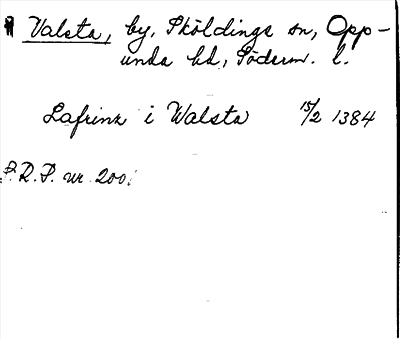 Valsta, by, Sköldinge sn, Opp-
unda hd, Söderm. l.
Lafrinz i Walsta 15/2 1384
S.R.P. nr 200.